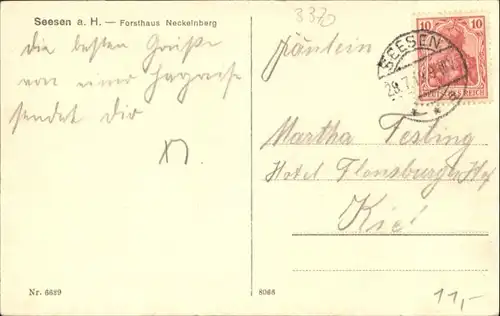 Seesen a. H. — Forsthaus Neckelnberg
3370
Die besten Grüße
von einer
sendet Dir
Fräulein
Martha Testing
Hotel Flensburger Hof
Kiel
10 10
SEESEN
DEUTSCHES REICH
Nr. 6629
8066
11,-